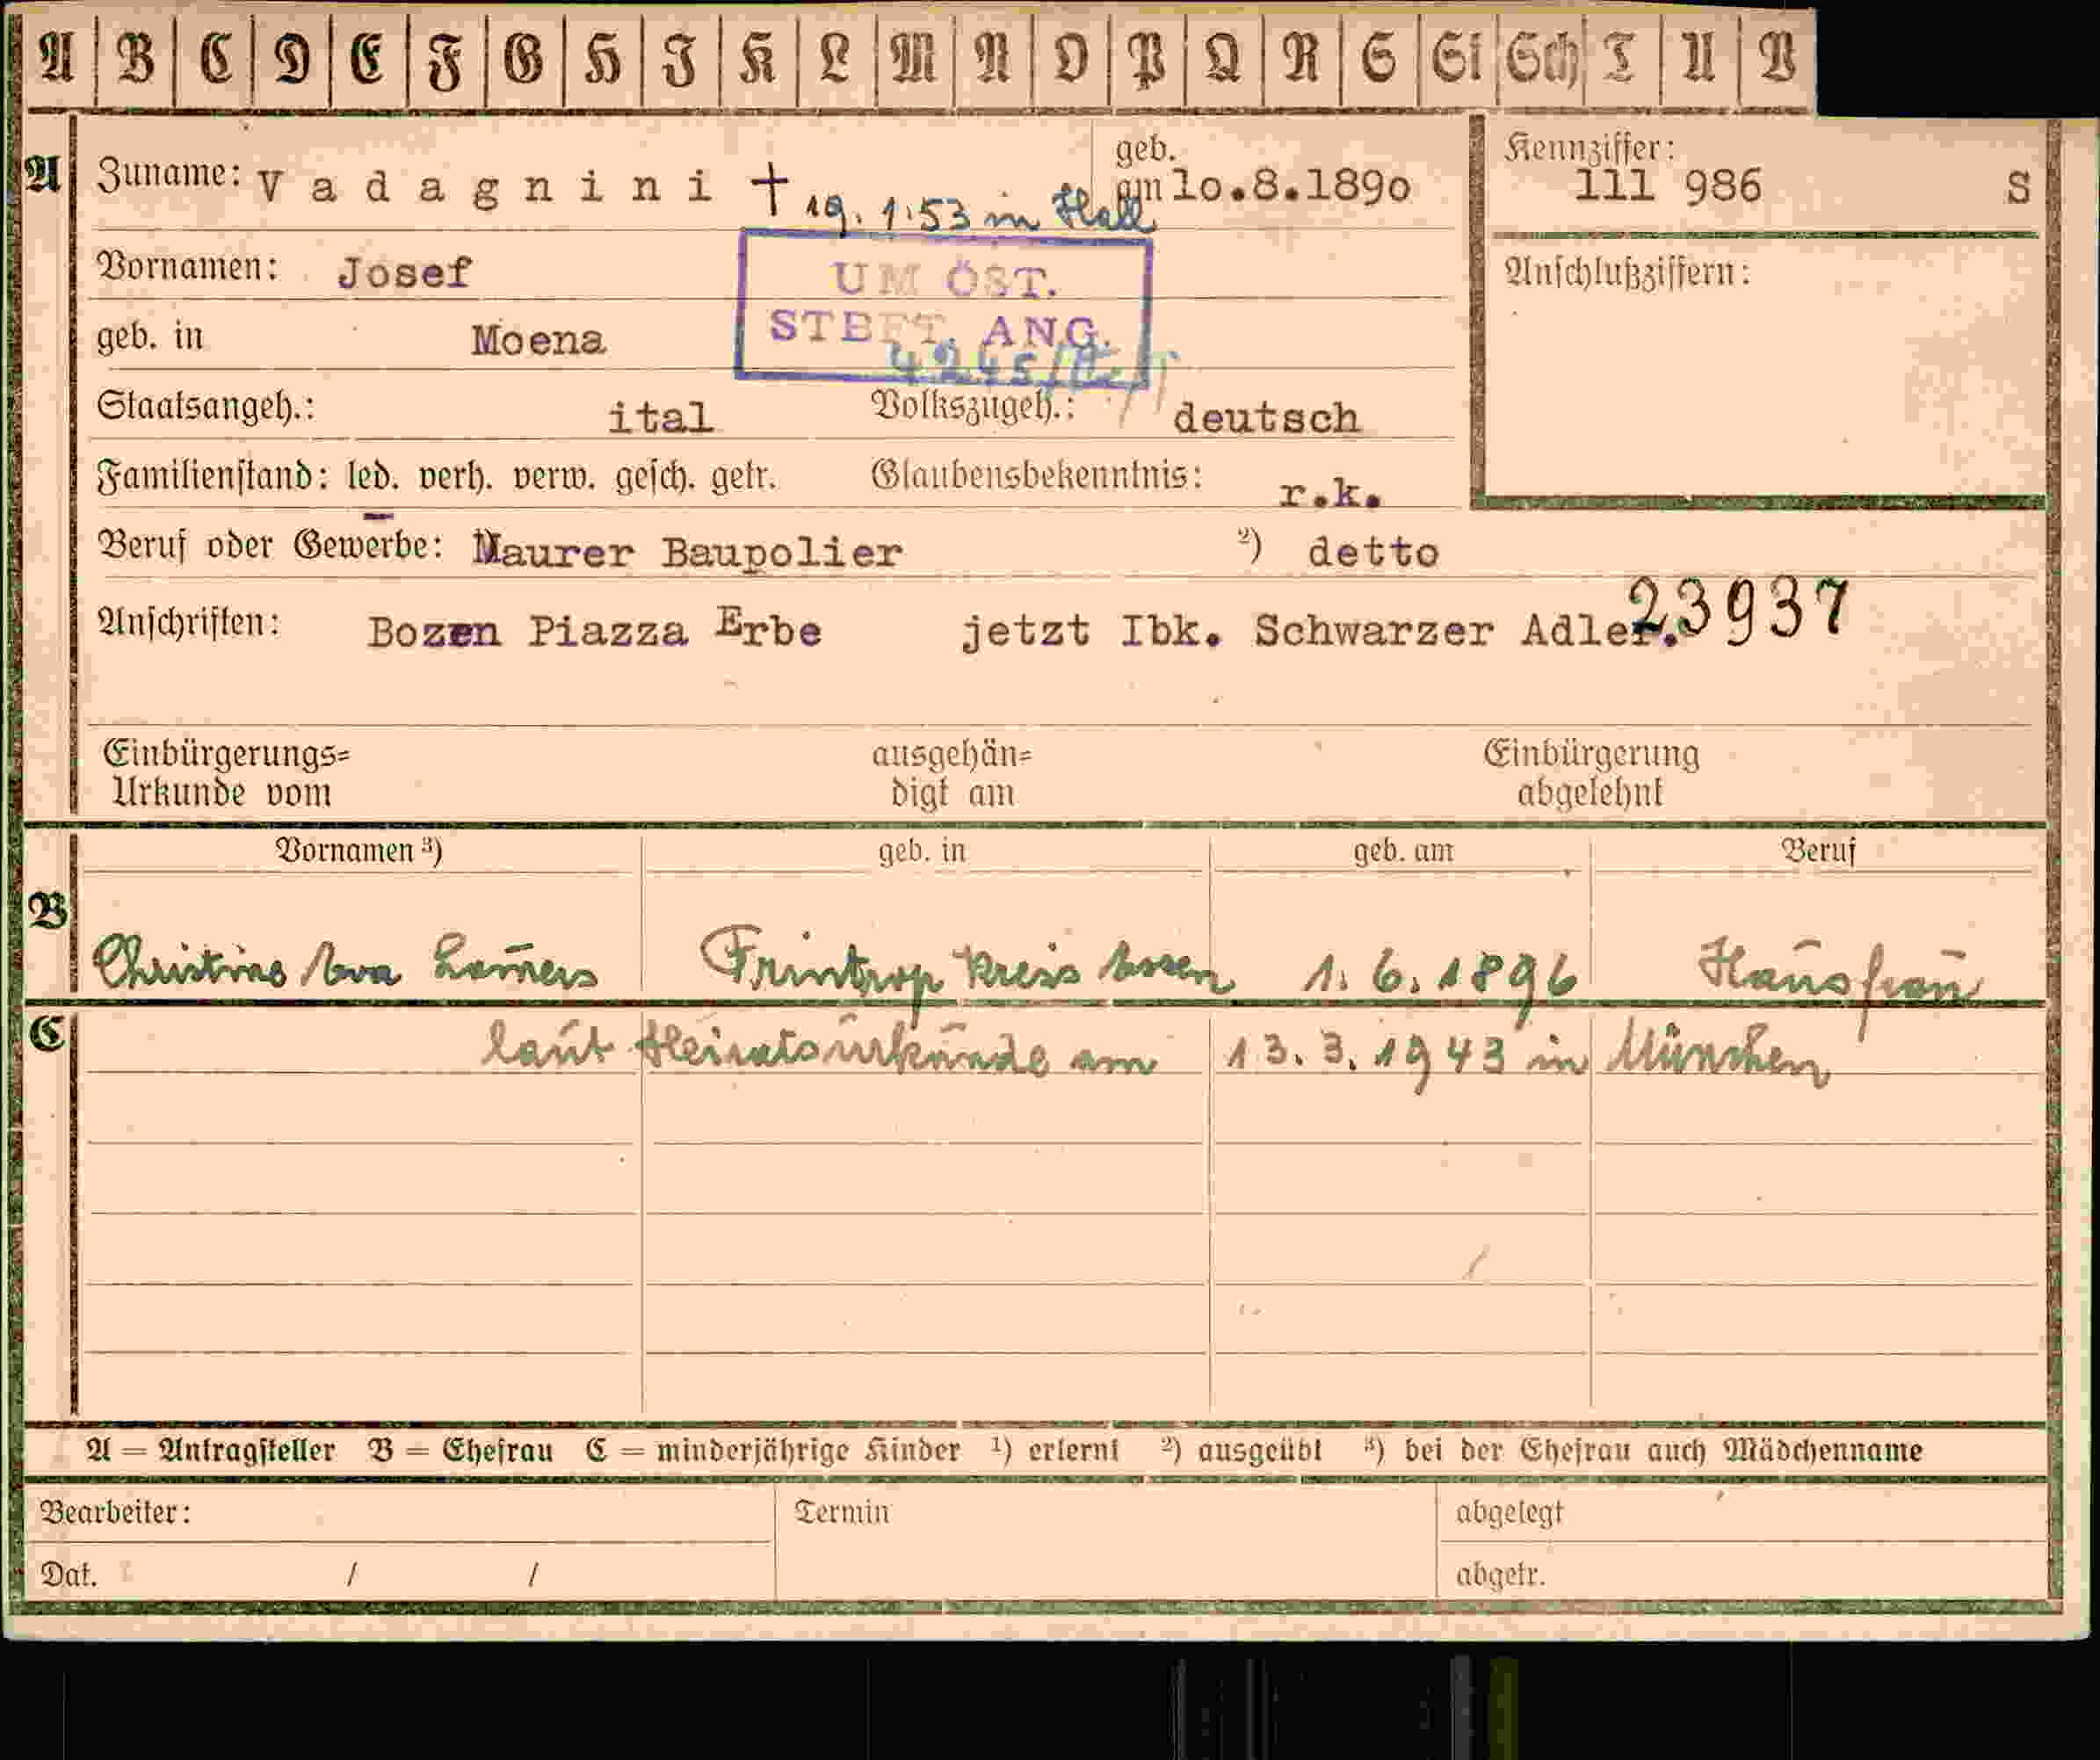 A B C D E F G H J K L M N O P Q R S St Sch T U V
A Zuname: V a d a g n i n i † 19.1.53 in Hall geb. am 10.8.1890
Kennziffer: 111 986 S
Vornamen: Josef
UM ÖST.
STBFT. ANG.
Anschlußziffern:
geb. in Moena
Staatsangeh.: ital Volkszugeh.: deutsch
Familienstand: led. verh. verw. gesch. getr. Glaubensbekenntnis: r.k.
Beruf oder Gewerbe: Maurer Baupolier ²) detto
Anschriften: Bozen Piazza Erbe jetzt Ibk. Schwarzer Adler. 23937
Einbürgerungs= ausgehän= Einbürgerung
Urkunde vom digt am abgelehnt
Vornamen ³) geb. in geb. am Beruf
B Christine Eva Frintrop Kreis Essen 1.6.1896 Hausfrau
C laut Heiratsurkunde am 13.3.1943 in München
A = Antragsteller B = Ehefrau C = minderjährige Kinder ¹) erlernt ²) ausgeübt ³) bei der Ehefrau auch Mädchenname
Bearbeiter: Termin abgelegt
Dat. / / abgetr.